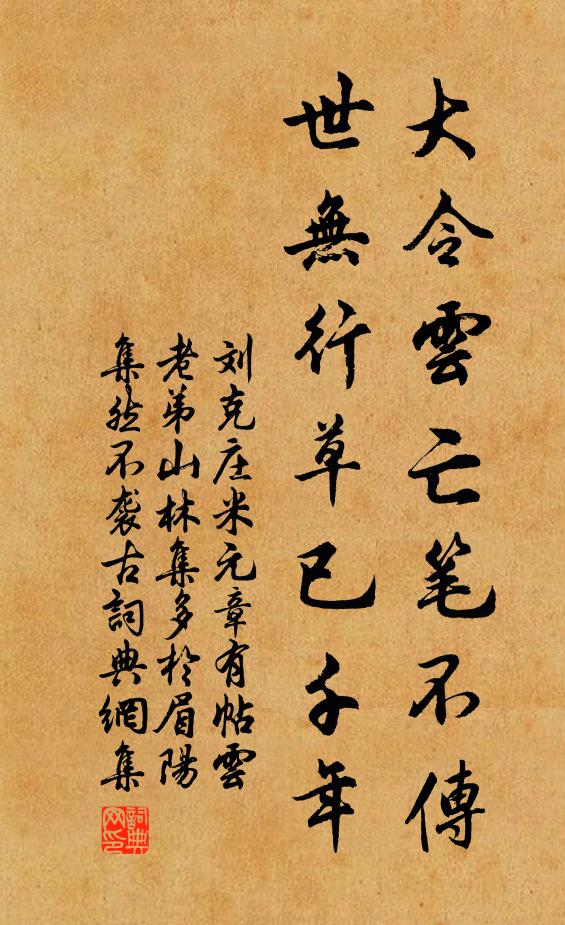 大令雲亡笔不傳
世無行草已千年
刘克庄米元章有帖雲
老弟山林集多於眉陽
集然不袭古詞典網集
詞典网印